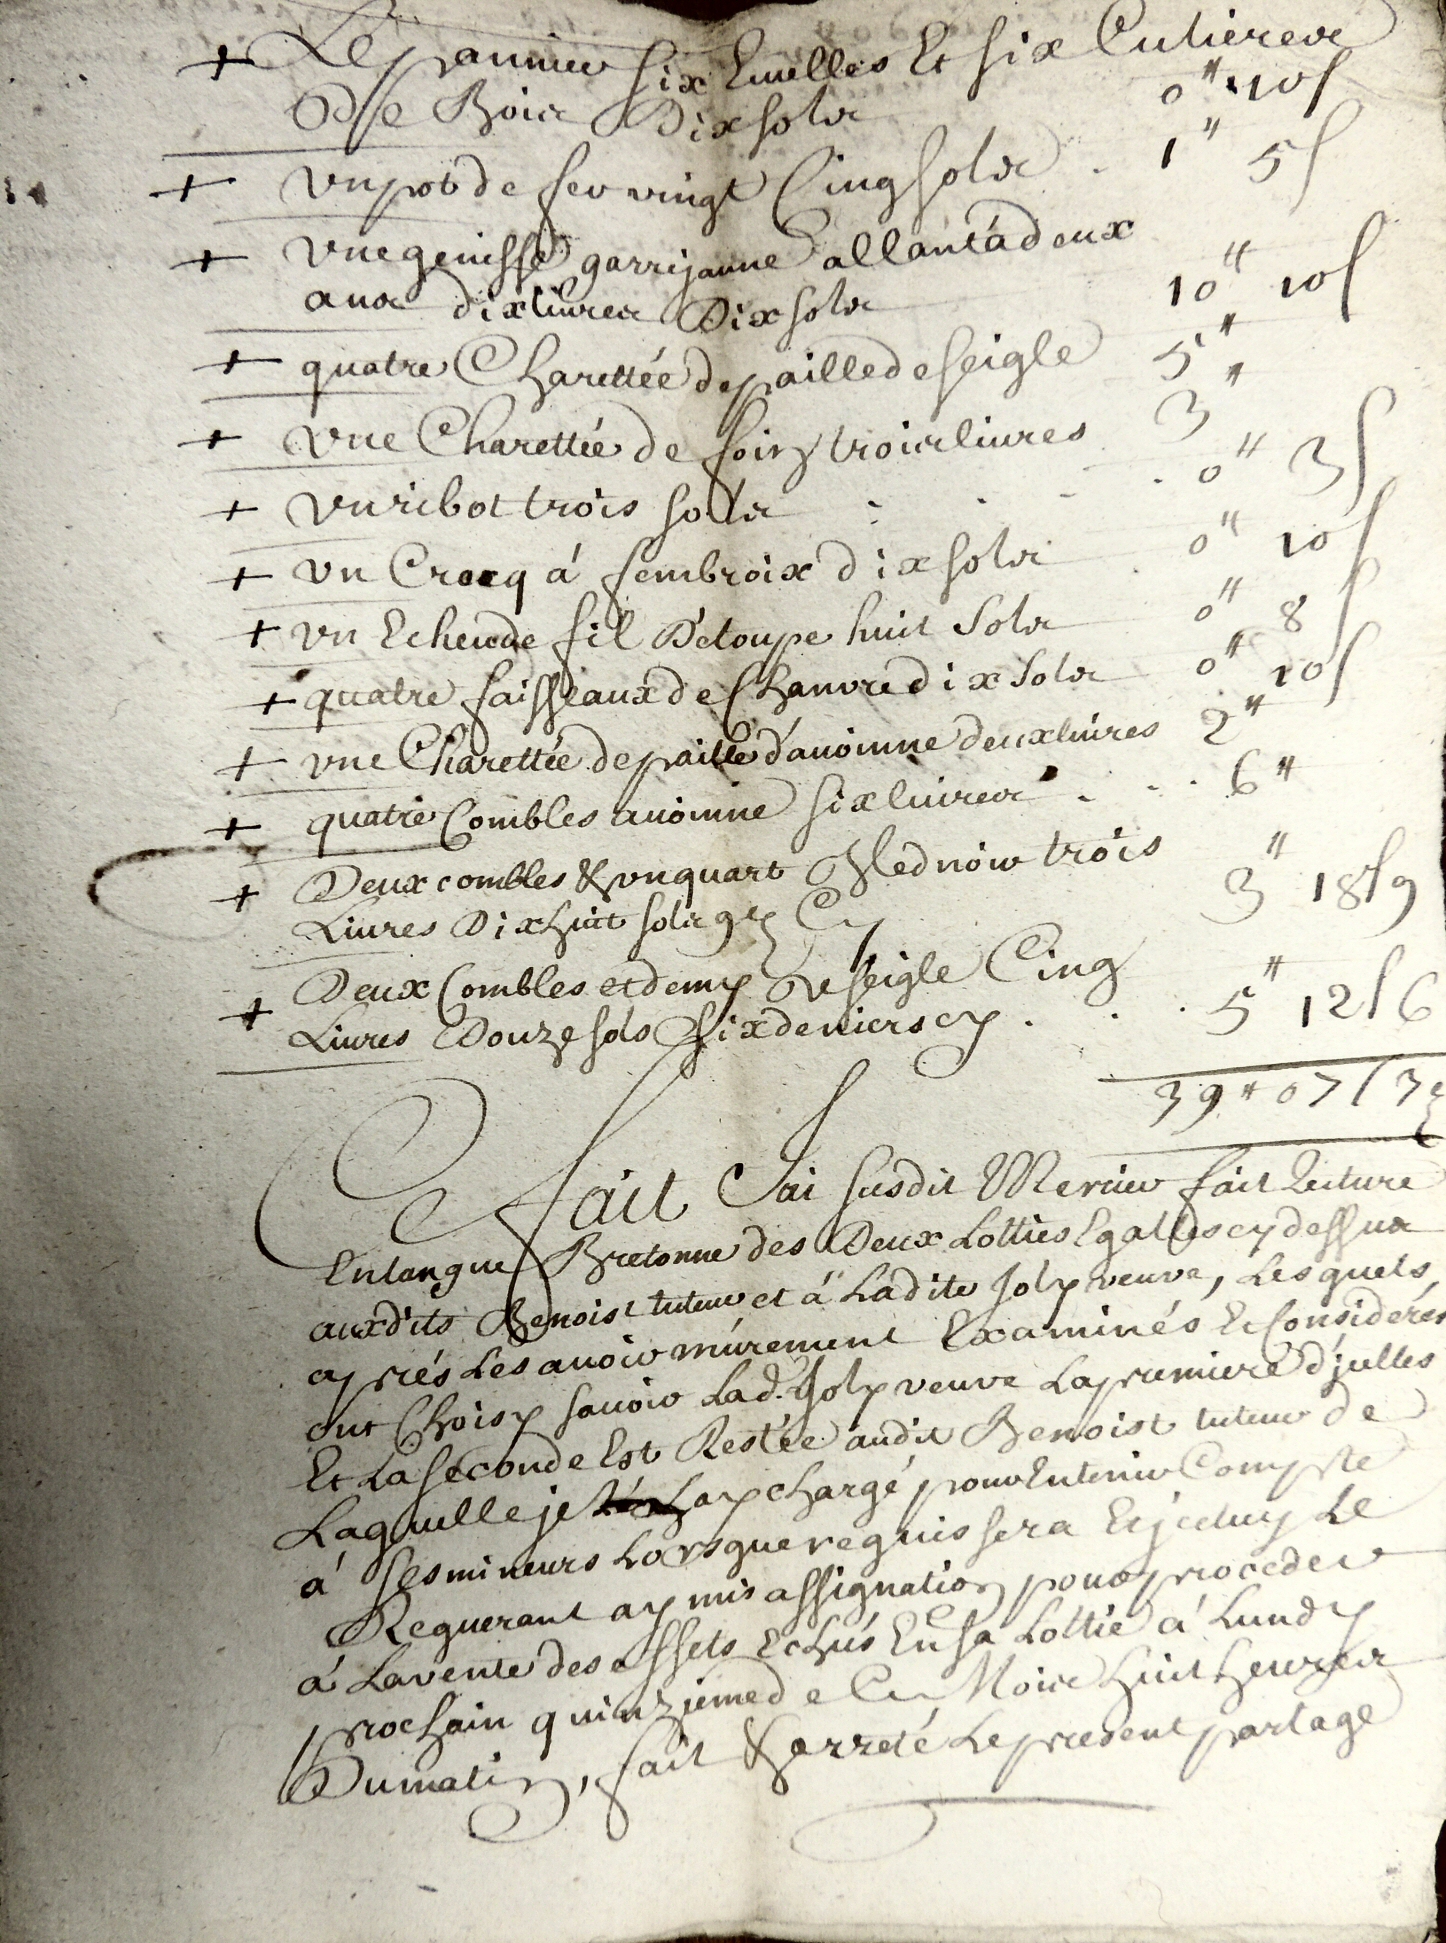 + Le pannier six Ecuelles Et six Cuilieres
De Bois Dix sols 0" 10s
+ un pot de fer vingt Cinq sols . 1" 5s
+ une genisse garrijaune allant à deux
ans dix livres Dix sols 10" 10s
+ quatre Charettée de paille de seigle 5"
+ une Charettée de foin trois livres 3"
+ un ribot trois sols . . . 0" 3s
+ un Crocq à fembroix dix sols 0" 10s
+ un Echeude fil D'etoupe huit Sols 0" 8s
+ quatre faisseaux de Chanvre dix Sols 0" 10s
+ une Charettée de paille d'avoinne deux livres 2"
+ quatre Combles avoinne six livres . . . 6"
+ Deux combles & un quart Bled noir trois
Livres Dix huit sols 9d Cy 3" 18s 9
+ Deux Combles et demy De seigle Cinq
Livres Douze sols six deniers cy . . . 5" 12s 6
39" 07s 3d
Fait J'ai susdit fait Lecture
En langue Bretonne des Deux Lotties Egalles cy dessus
auxdits Benoist tuteur et à Ladite Joly veuve, Lesquels
après Les avoir mûrement Examinés Et Considérés
ont Choisy savoir Lad.e Joly veuve La premiere d'jcelles
Et La seconde Est Restée audit Benoist tuteur de
Laquelle je L'ay chargé pour En tenir Compte
à ses mineurs Lorsque requis sera Et jceluy Le
Requerant ay mis assignation pour proceder
à La vente des effets Echus En sa Lottie à Lundy
prochain quinzieme de Ce Mois huit heures
Du matin, fait & arreté Le present partage